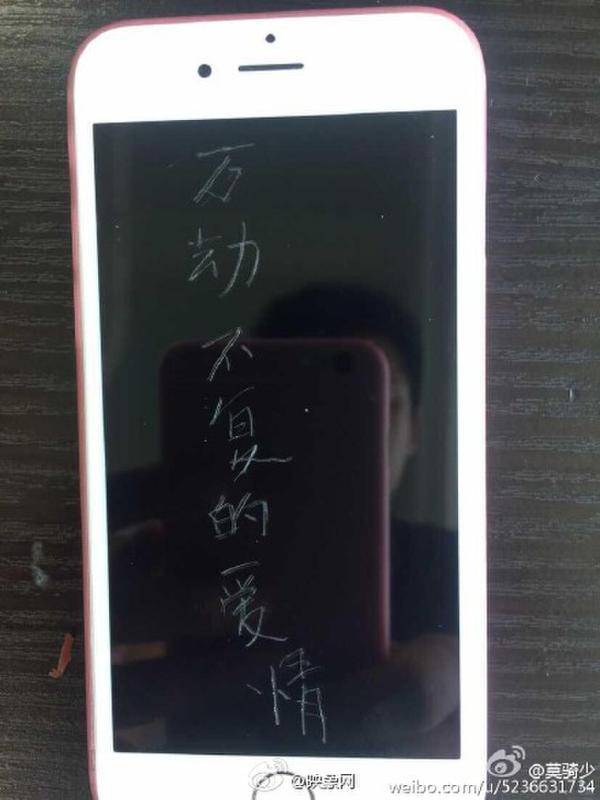 万劫不复的爱情
@映象网
@莫骑少
weibo.com/u/5236631734